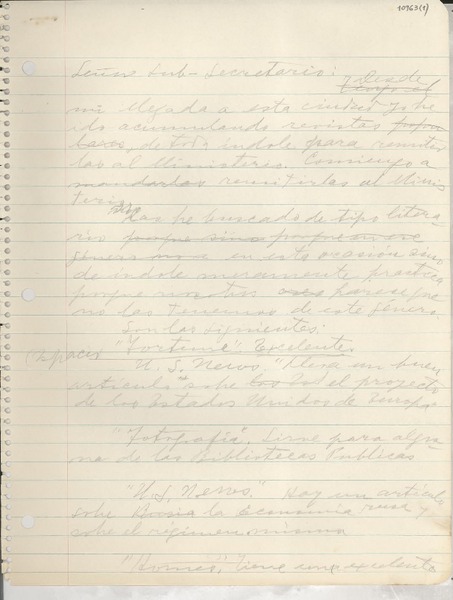 10963(1)
Señor Sub-Secretario:
Desde
mi llegada a esta ciudad yo he
ido acumulando revistas
de toda índole para remitir
las al Ministerio. Comienzo a
mandarlas remitirlas al Minis
terio.
No las he buscado de tipo litera
rio porque
género no a en esta ocasión sino
de índole meramente práctica
porque nosotros parece que
no las tenemos de este género.
Son las siguientes:
(espacio) "Fortune". Excelente.
U. S. News. "Lleva un buen
artículo" sobre los Do el proyecto
de los Estados Unidos de Europa.
"Fotografía". Sirve para algu
na de las Bibliotecas Publicas
"U. S. News." Hay un artículo
sobre Rusia la economía rusa y
sobre el régimen mismo
"Homes". Tiene una excelente